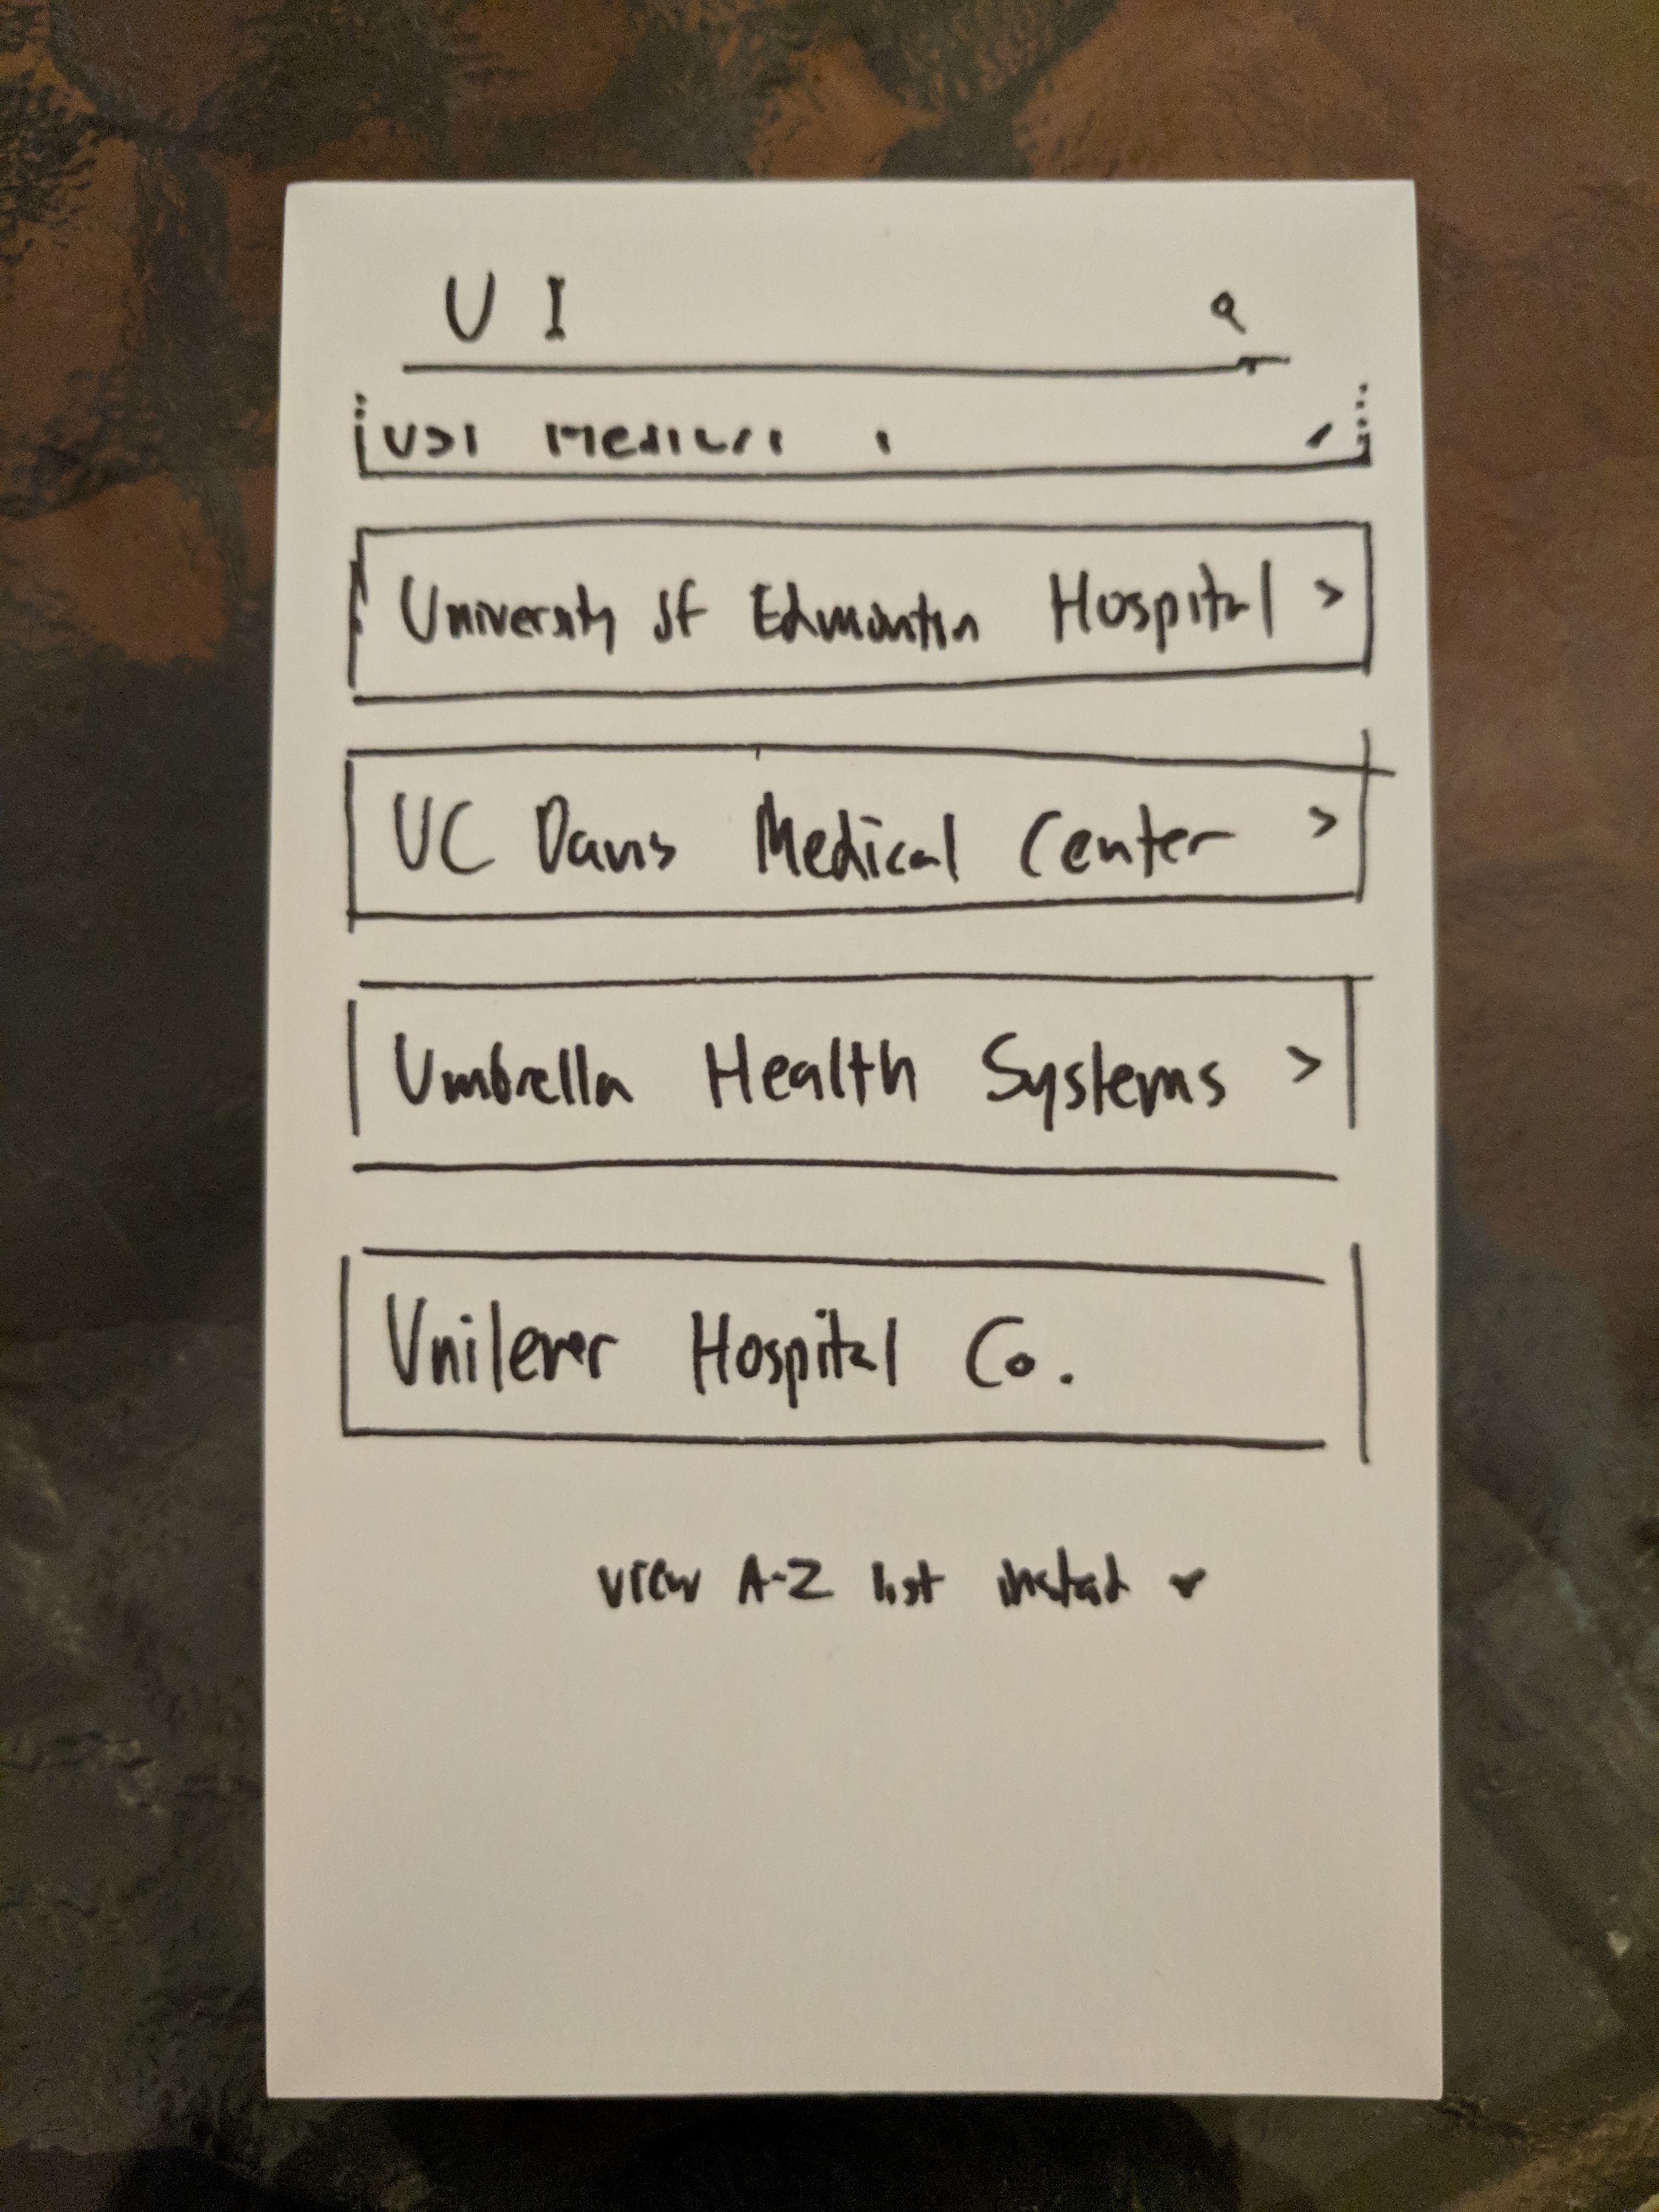 U I
University of Edmonton Hospital >
UC Davis Medical Center >
Umbrella Health Systems >
Unilever Hospital Co.
view A-Z list instead